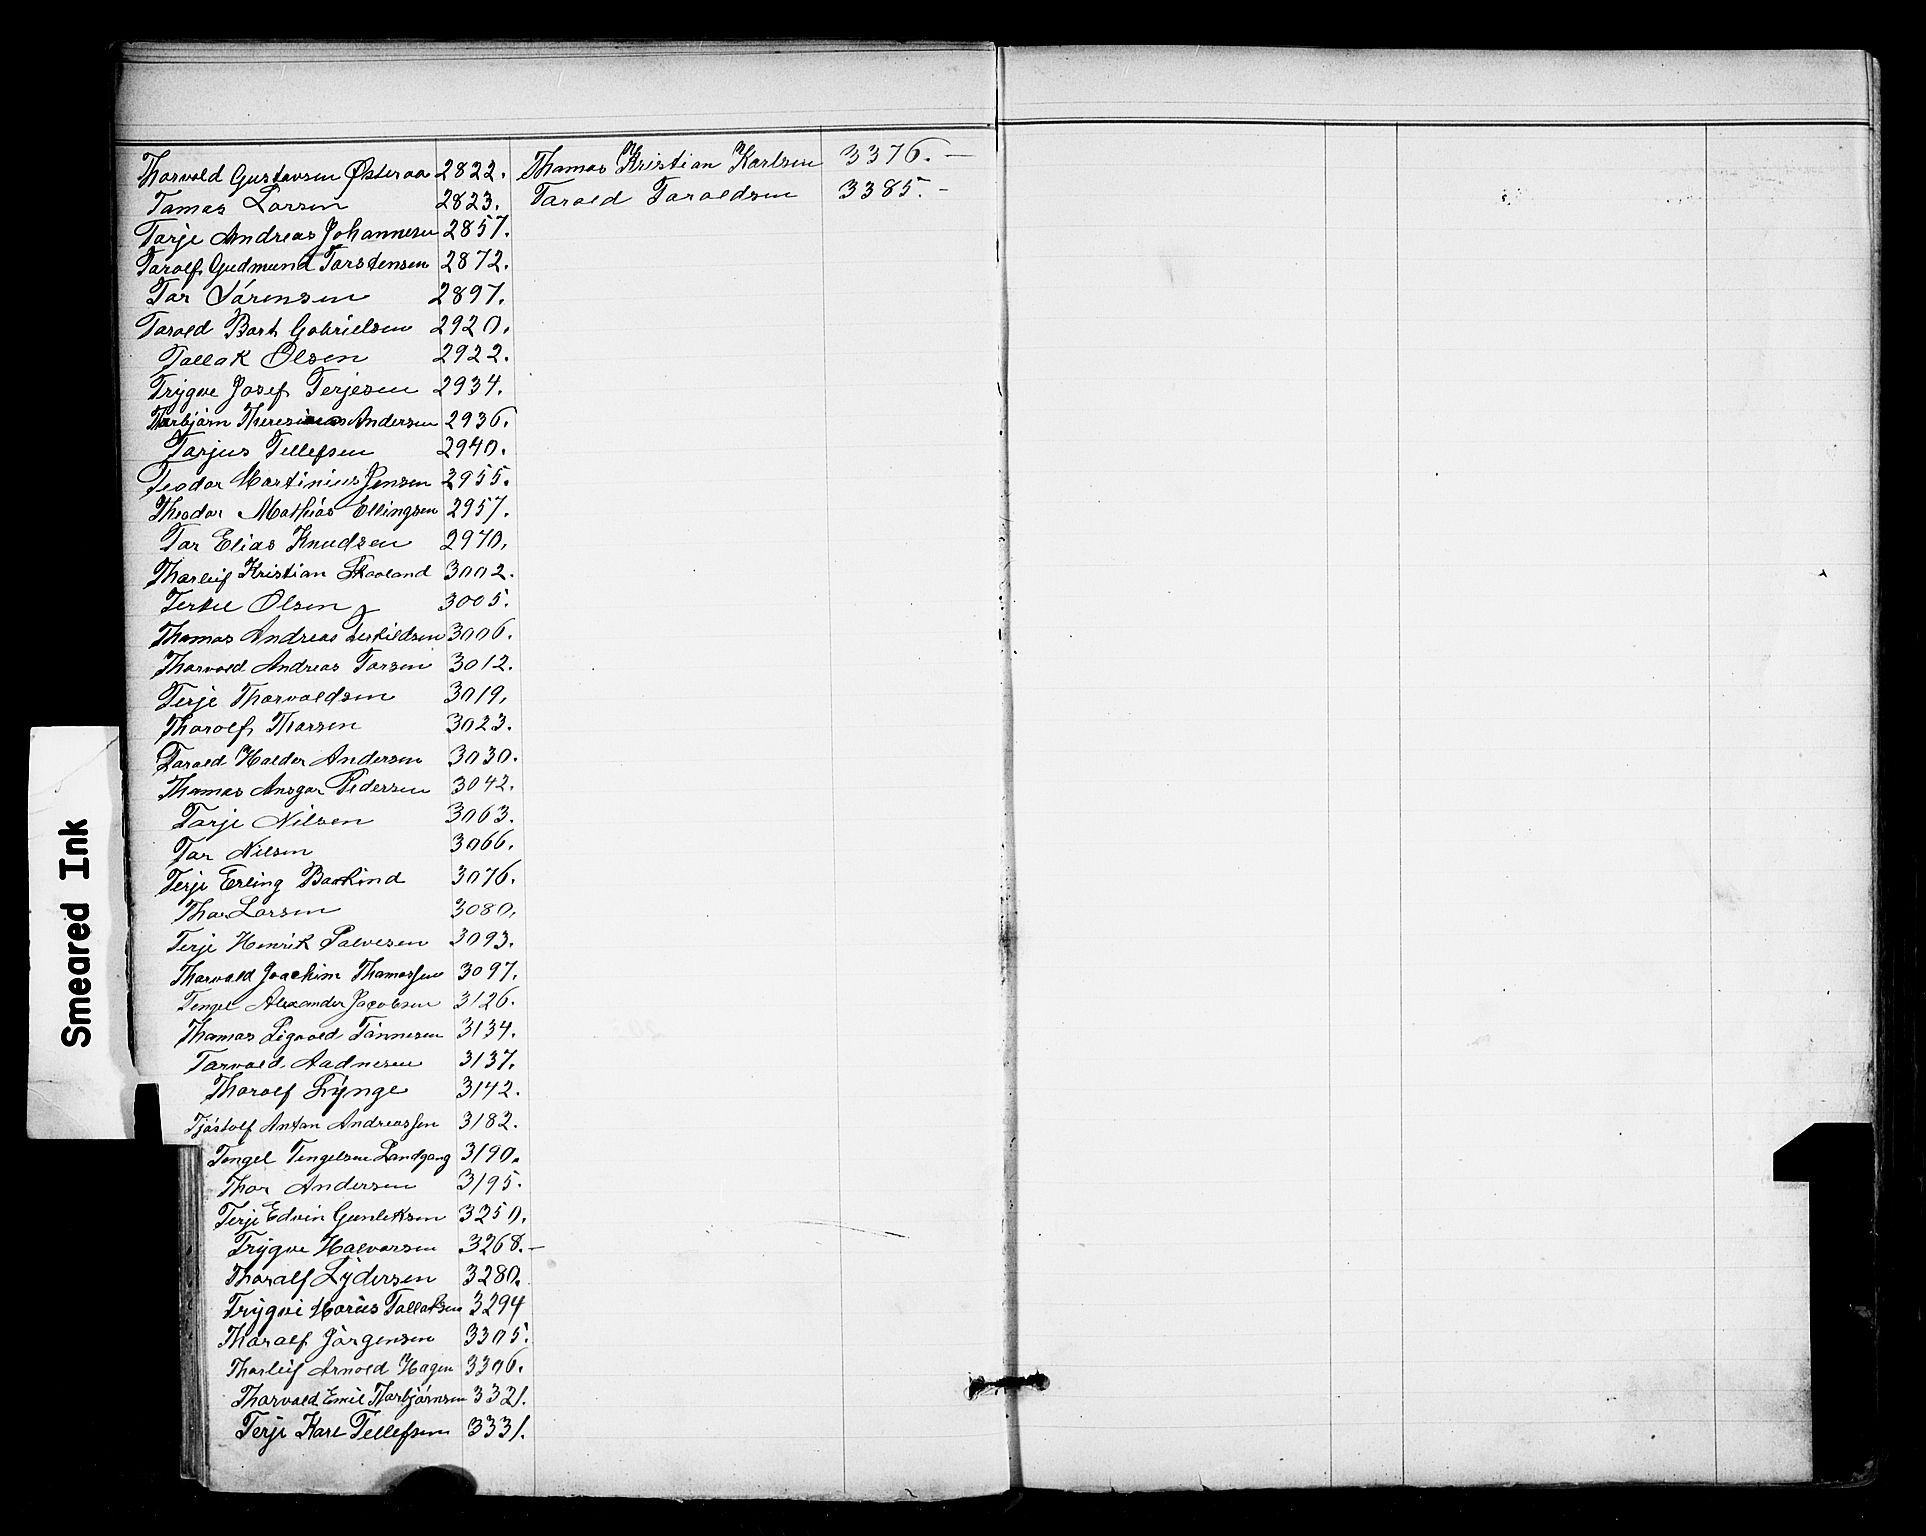 Thorvald Gustavsen Østeraa 2822.
Tomas Larsen 2823.
Tarje Andreas Johannesen 2857.
Torolf Gudmund Torstensen 2872.
Tor Sørensen 2897.
Torald Bart Gabrielsen 2920.
Tallak Olsen 2922.
Trygve Josef Terjesen 2934.
Torbjørn Andersen 2936.
Tarjus Tellefsen 2940.
Teodor Martinius Jensen 2955.
Theodor Mathias Ellingsen 2957.
Tor Elias Knudsen 2970.
Thorleif Kristian Skaoland 3002.
Terkel Olsen 3005.
Thomas Andreas Eskildsen 3006.
Thorvald Andreas Torsen 3012.
Terje Thorvaldsen 3019.
Thorolf Thorsen 3023.
Torald Halder Andersen 3030.
Thomas Ansgar Pedersen 3042.
Tarje Nilsen 3063.
Tor Nilsen 3066.
Terje Erling Baskind 3076.
Thor Larsen 3080.
Terje Henrik Salvesen 3093.
Thorvald Joachim Thomassen 3097.
Tengel Alexander Jacobsen 3126.
Thomas Sigvald Tønnesen 3134.
Torvald Aadnesen 3137.
Thoralf Lynge 3142.
Tjøstolf Anton Andreassen 3182.
Tengel Tengelsen Landgang 3190.
Thor Andersen 3195.
Terje Edvin Gunleksen 3250.
Trygve Halvorsen 3268.-
Thoralf Lydersen 3280.
Trygve Marius Tallaksen 3294
Thoralf Jørgensen 3305.
Thorleif Arnold Hagen 3306.
Thorvald Emil Thorbjørnsen 3321.
Terje Karl Tellefsen 3331.
Thomas Kristian Karlsen 3376.-
Torald Toraldsen 3385.-
Smeared Ink